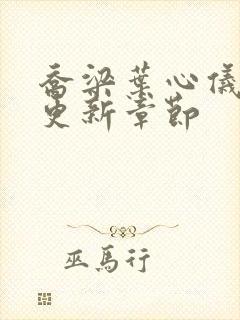 乔梁葉心儀
更新章節
巫馬行